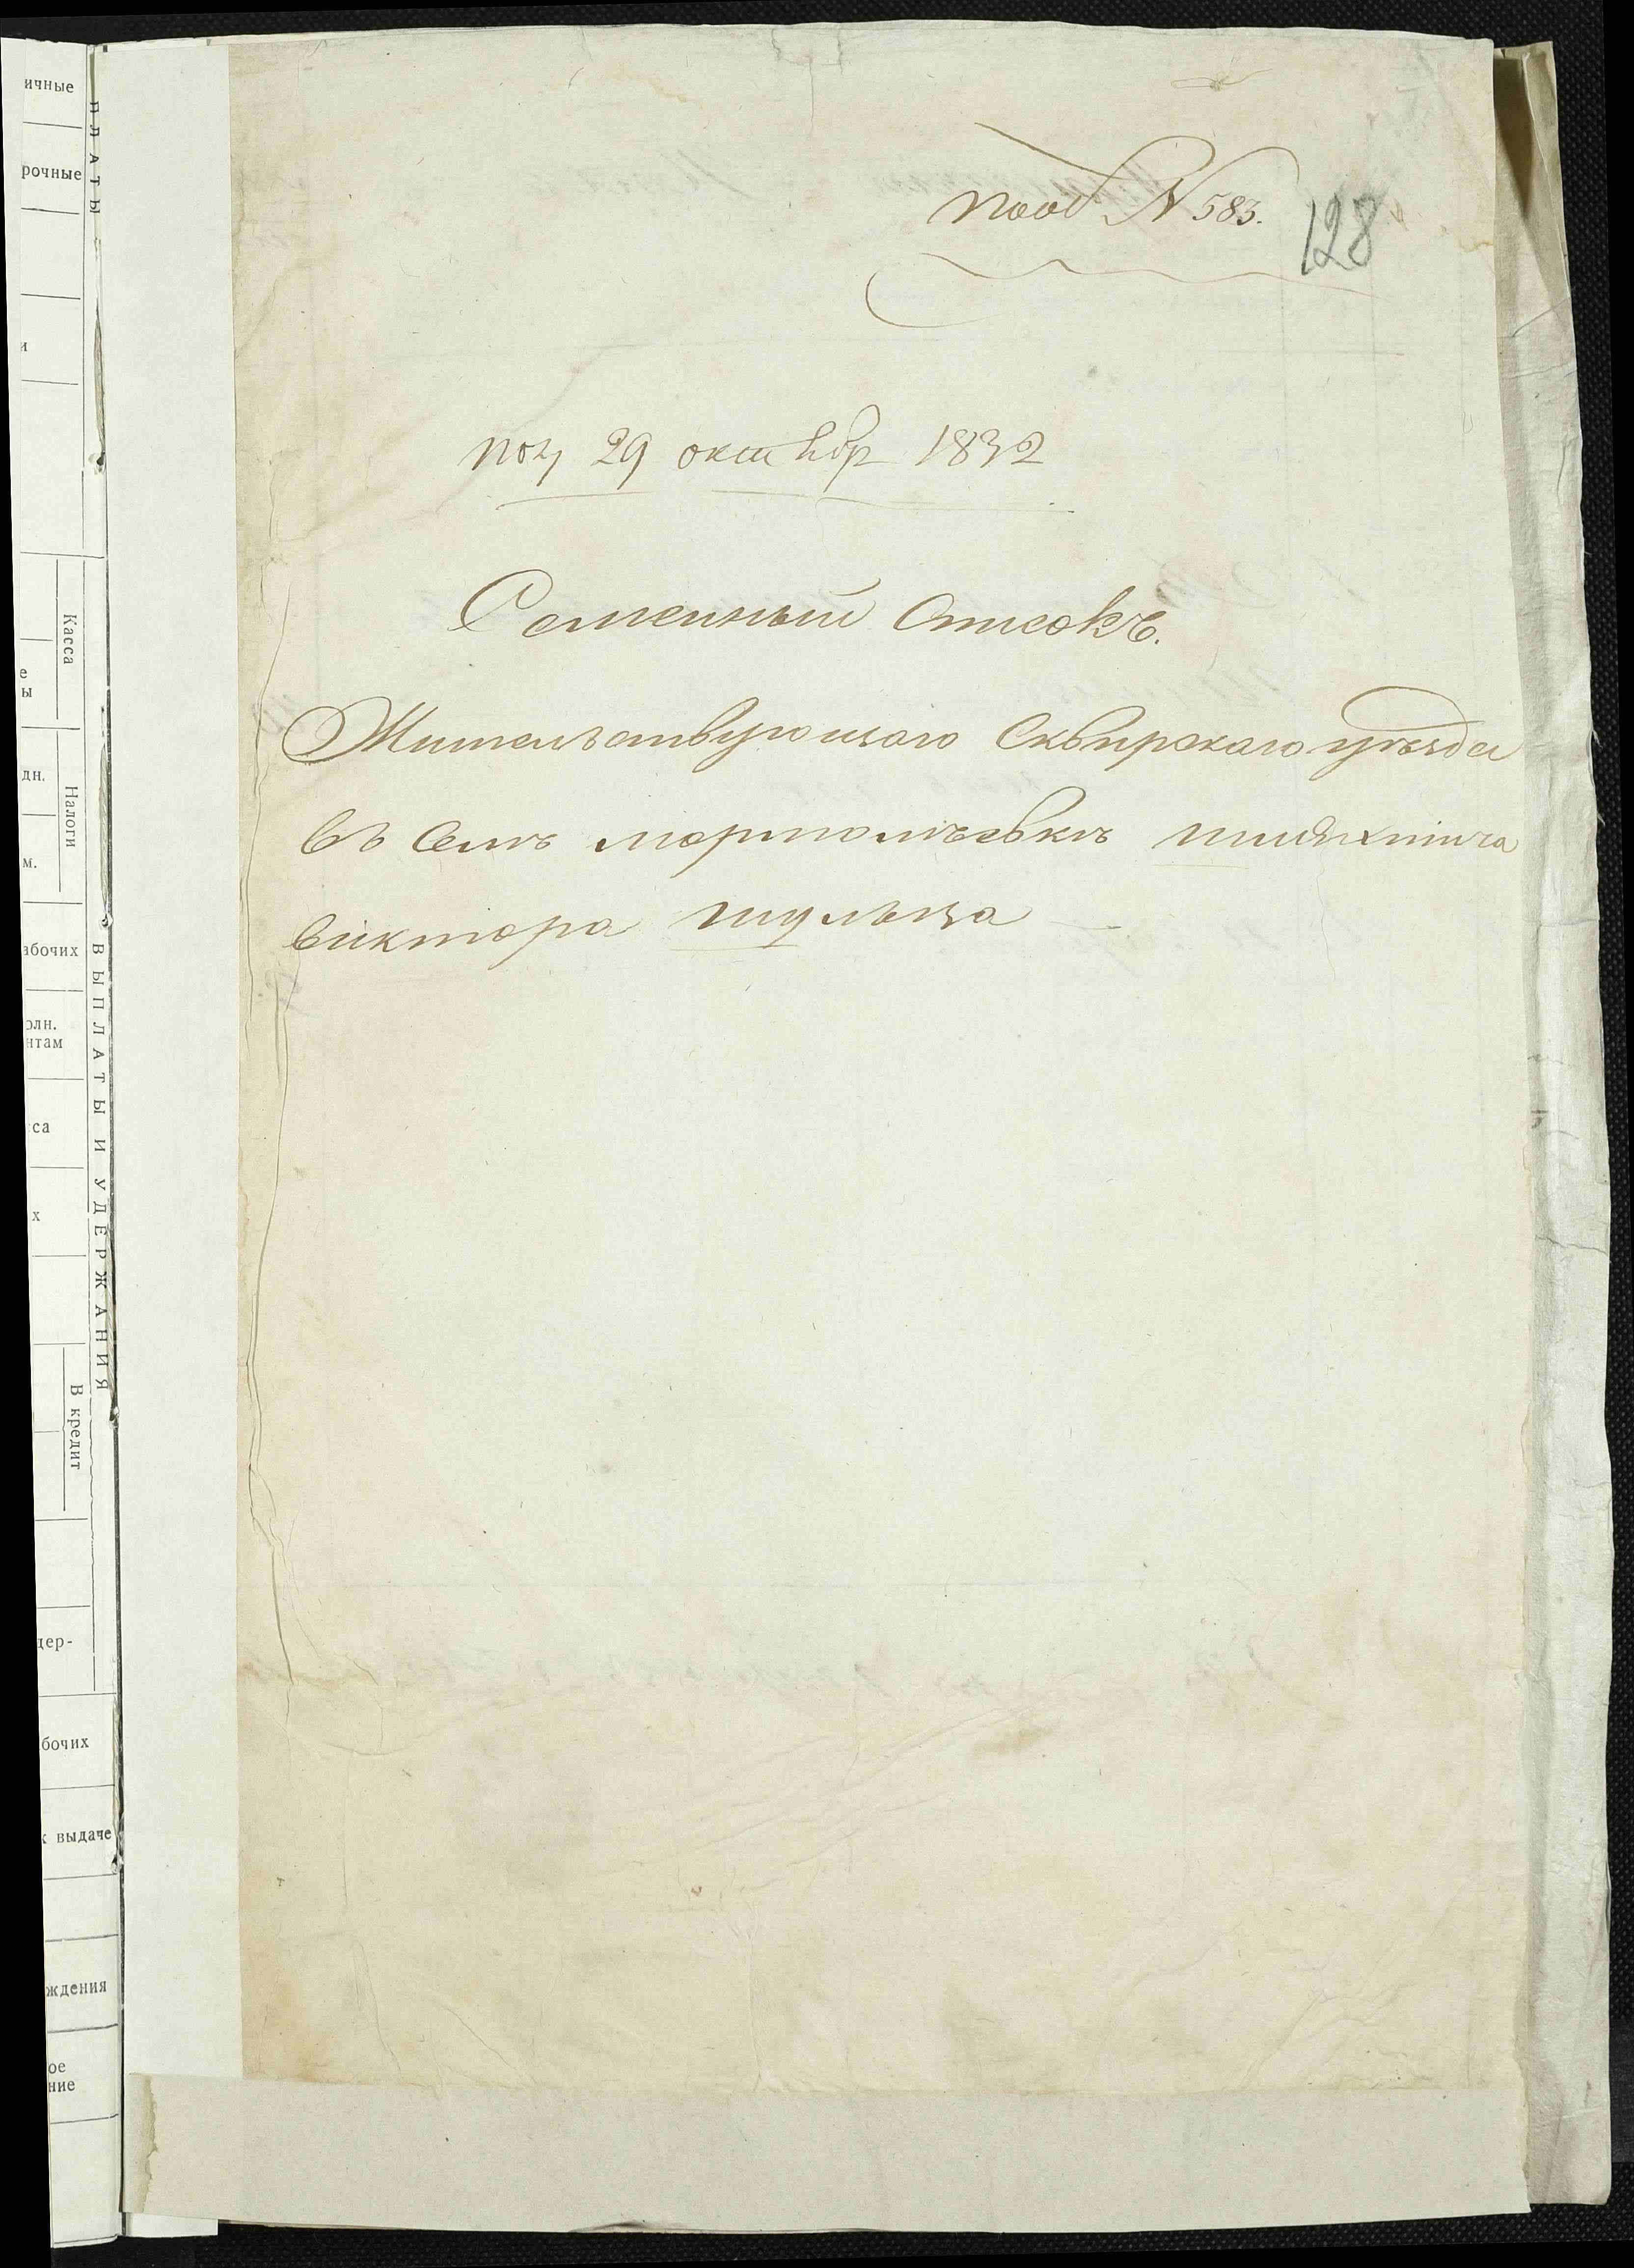 подъ N 583.
128
пол 29 октября 1832
Семейный Списокъ.
Жительствующаго Сквирскаго уѣзда
въ Селѣ Мармолѣевкѣ шляхтича
Виктора Шульца
ичные
рочные
ПЛАТЫ
и
Касса
е
ы
дн.
Налоги
м.
абочих
ВЫПЛАТЫ И УДЕРЖАНИЯ
олн.
нтам
са
х
В кредит
дер-
бочих
к выдаче
ждения
ое
ние